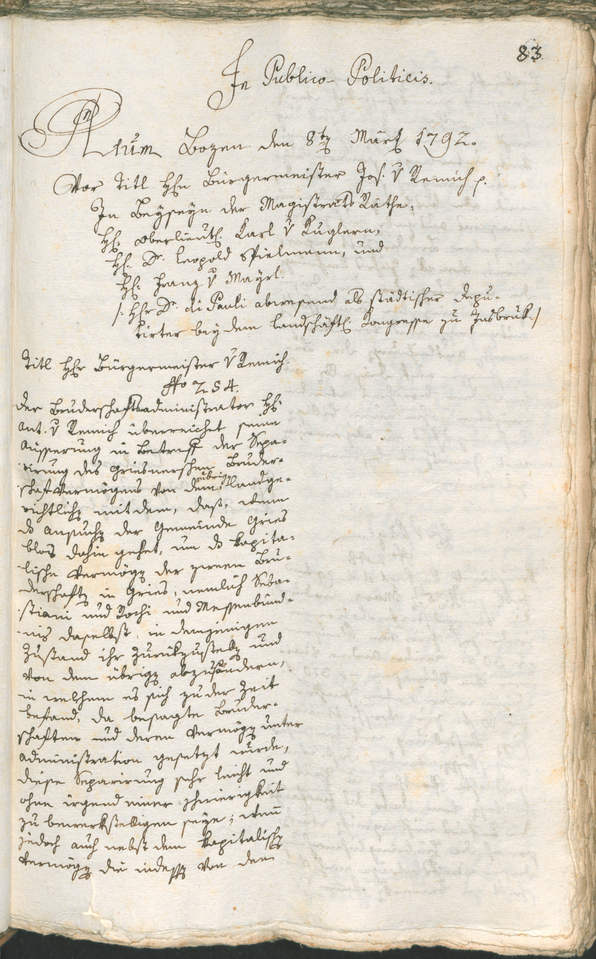 83
In Publico-Politicis.
Actum Bozen den 8ten März 1792.
Vor Titl Hhn Bürgermeister Jos. v Remich p.
In Beyseyn der Magistrats Räthe,
Hh. Oberlieut Karl v Kuglern,
Hh. Dr. Leopold Spielmann, und
Hh. Franz v Mayrl.
/: Hhr Dr. di Pauli abwesend als städtischer Depu-
tirter bey dem landschäftl Congresse zu Insbruk :/
Titl Hhr Bürgermeister v Remich
No 254.
Der Bruderschaftsadministrator Hh
Ant. v Remich überreichet seine
Äusserung in Betreff der Sepa-
rirung des Griesnerschen Bruder-
schaftsvermögens von dem übrig Landge-
richtlich mit dem, daß, wenn
das Ansuch der Gemeinde Gries
blos dahin gehet, um das kapita-
lische Vermög der zween Bru-
derschaft in Gries, nemlich Seba-
stiani und Rochi und Messenbünd-
niß daselbst, in demjenigen
Zustand ihr zurükzustell und
von dem übrig abzusöndern,
in welchem es sich zu der Zeit
befand, da besagte Bruder-
schaften und deren Vermög unter
administration gesetzt wurde,
diese Separirung sehr leicht und
ohne irgend einer schwierigkeit
zu bewerkstelligen seye; wenn
jedoch auch nebst dem kapitalisch
Vermög die indess von dem